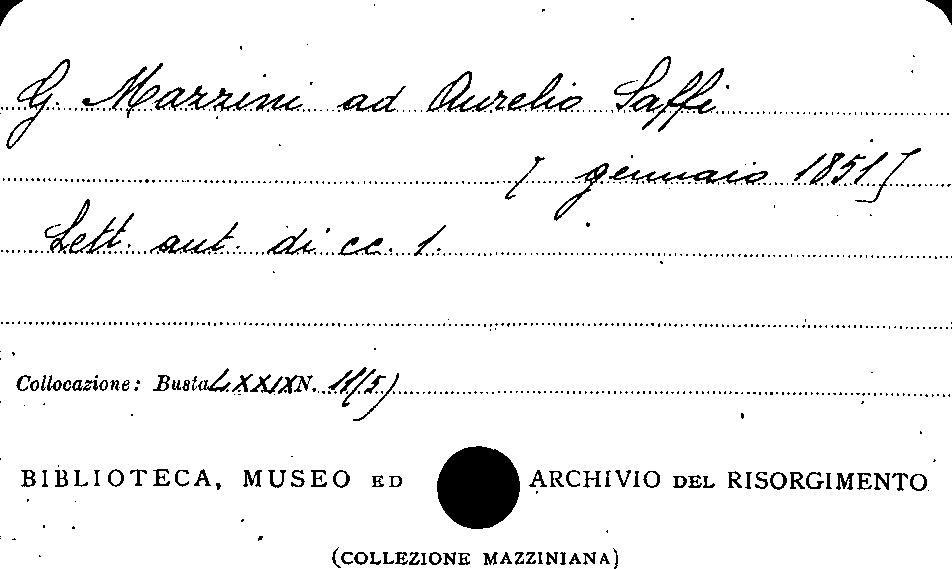 G. Mazzini ad Aurelio Saffi
[ gennaio 1851]
Lett. aut. di cc. 1.
Collocazione: Busta LXXIX N. 11(5)
BIBLIOTECA, MUSEO ED ARCHIVIO DEL RISORGIMENTO
(COLLEZIONE MAZZINIANA)